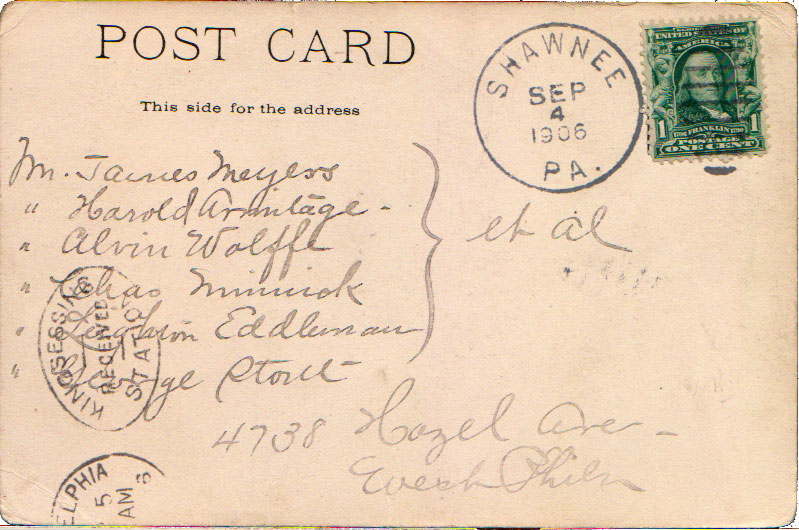 POST CARD
This side for the address
SHAWNEE
SEP
4
1906
PA.
SERIES 1902
UNITED STATES OF
AMERICA
1 FRANKLIN 1
POSTAGE
ONE CENT
Mr. James Meyers
" Harold Armitage -
" Alvin Wolffe
" Chas Minnick
" Leighton Eddleman
" George Stout
et al
KINGSESSING
RECEIVED
STATION
4738 Hazel Ave -
West Phila
ELPHIA
5
AM